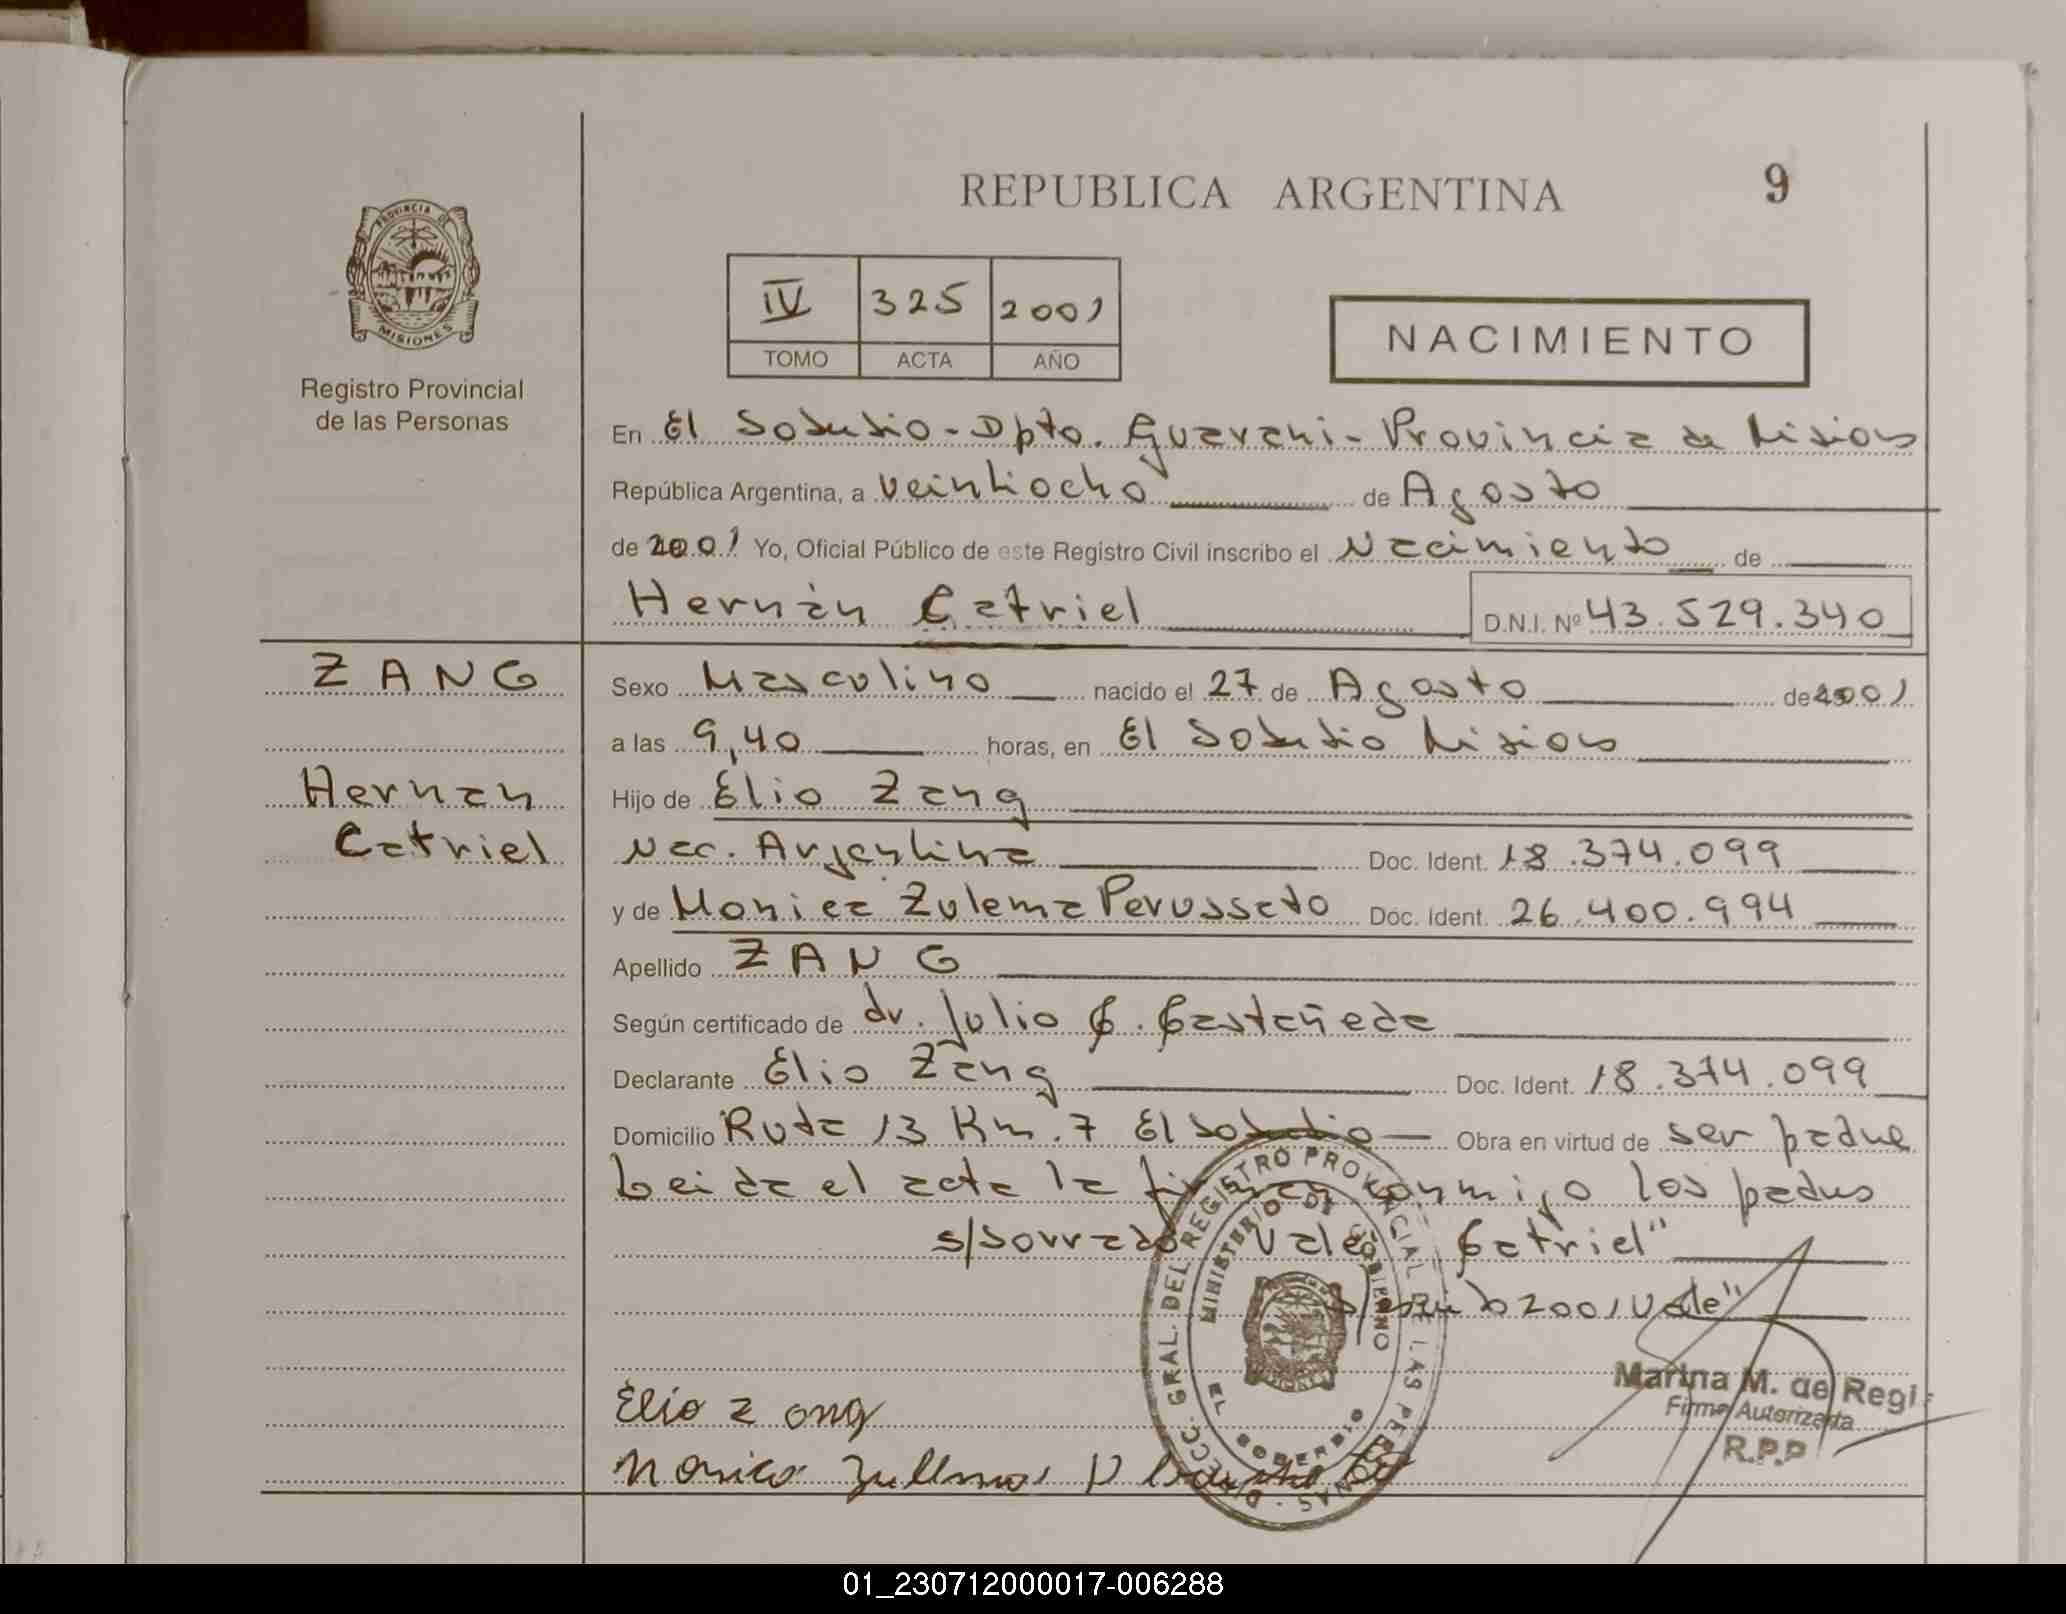 REPUBLICA ARGENTINA
9
PROVINCIA DE
MISIONES
Registro Provincial
de las Personas
IV 325 2001
TOMO ACTA AÑO
NACIMIENTO
En El Soberbio - Dpto. Guarani - Provincia de Misiones
República Argentina, a veintiocho de Agosto
de 2001 Yo, Oficial Público de este Registro Civil inscribo el Nacimiento de
Hernán Catriel D.N.I. Nº 43.529.340
ZANG
Sexo Masculino nacido el 27 de Agosto de 2001
a las 9,40 horas, en El Soberbio Misiones
Hernan
Hijo de Elio Zang
Catriel
Nac. Argentina Doc. Ident. 18.374.099
y de Monica Zulema Perussato Doc. Ident. 26.400.994
Apellido ZANG
Según certificado de dr. Julio C. Castañeda
Declarante Elio Zang Doc. Ident. 18.374.099
Domicilio Ruta 13 Km. 7 El Soberbio Obra en virtud de ser padre
Leida el acta la firman conmigo los padres
s/borrado Vale Catriel"
2001 Vale"
DIRECC. GRAL. DEL REGISTRO PROVINCIAL DE LAS PERSONAS
MINISTERIO DE GOBIERNO
EL SOBERBIO
Marina M. de Regi
Firma Autorizada
R.P.P
Elio Zang
Monica
01_230712000017-006288